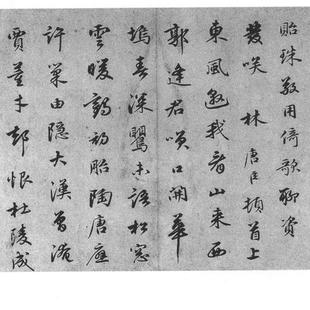 貽珠敬用倚歌聊資
發咲 林唐臣頓首上
東風邀我看山来西
郭逢君咲口開華
塢春深鸎未語松窓
雲暖鶴初胎陶唐應
許巢由隱大漢曾淹
賈董才却恨杜陵成